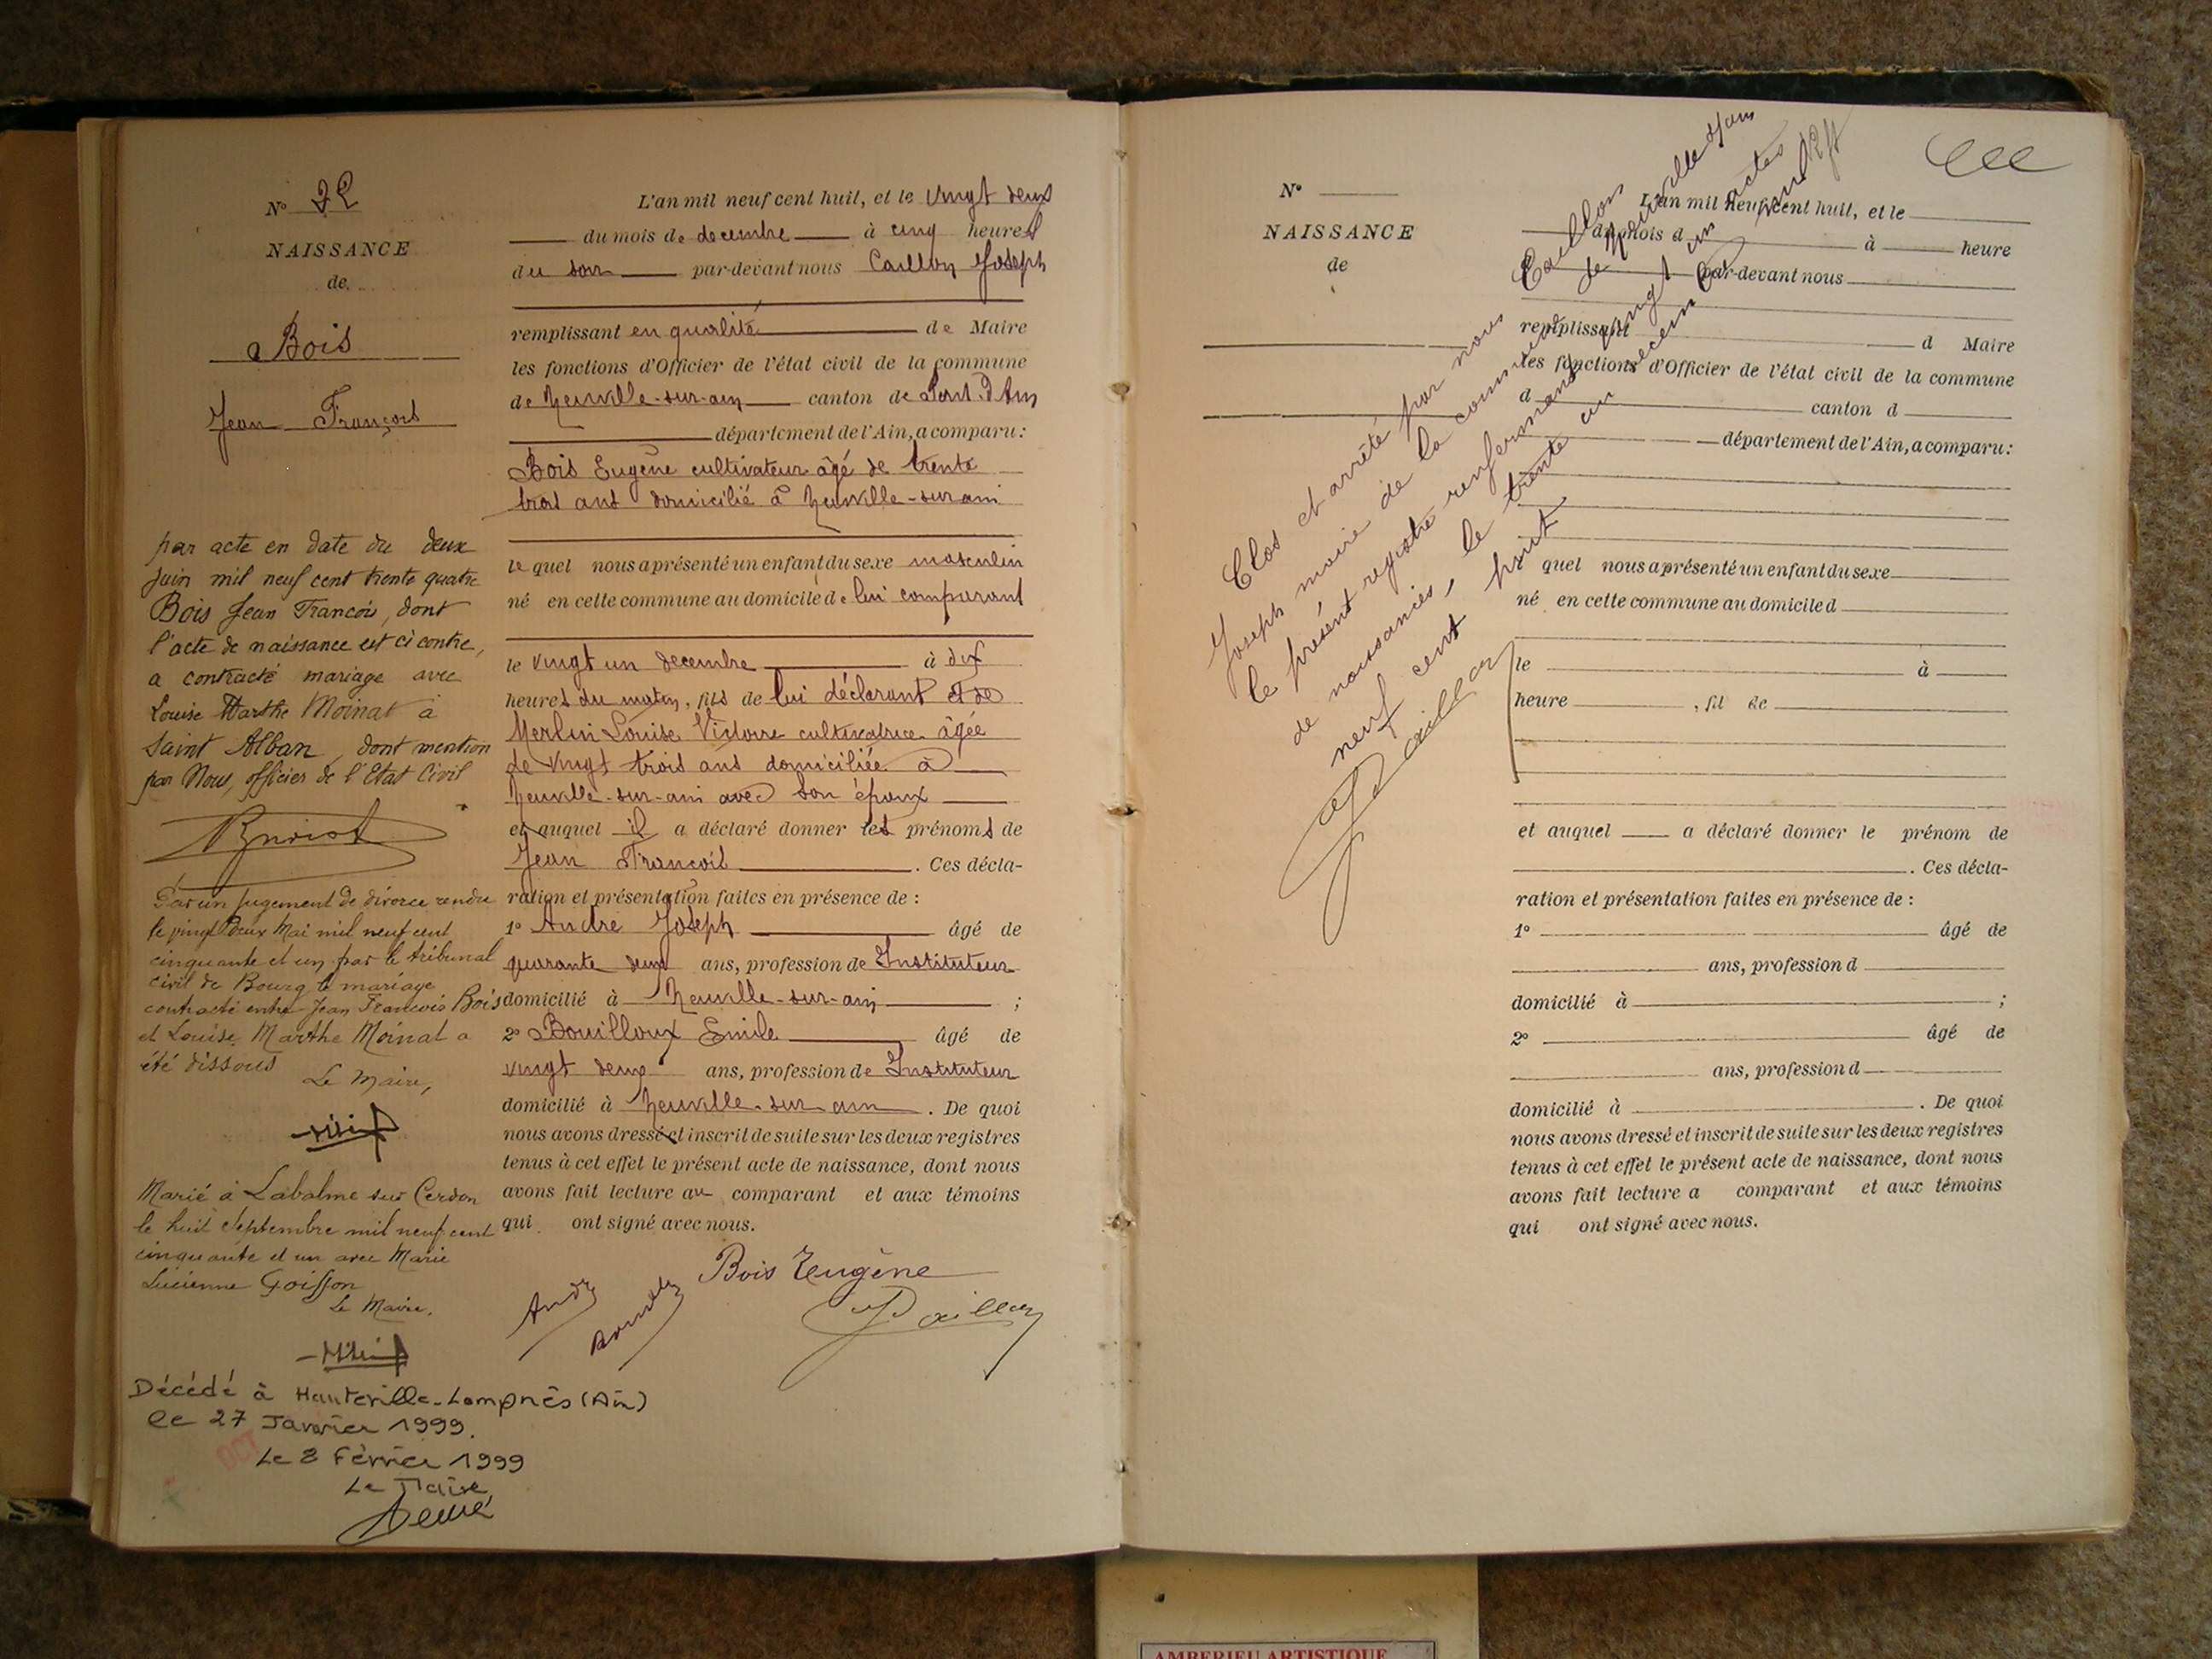 NAISSANCE
de
Bois
Jean François
par acte en date du deux
juin mil neuf cent trente quatre
Bois Jean François, dont
l'acte de naissance est ci contre,
a contracté mariage avec
Louise Marthe Moinat à
Saint Alban, dont mention
par Nous, officier de l'Etat Civil
Par un jugement de divorce rendu
le vingt deux Mai mil neuf cent
cinquante et un par le tribunal
civil de Bourg le mariage
contracté entre Jean François Bois
et Louise Marthe Moinat a
été dissous
Le Maire,
Marié à Labalme sur Cerdon
le huit Septembre mil neuf cent
cinquante et un avec Marie
Lucienne Goiffon
Le Maire.
Décédé à Hauteville-Lompnès (Ain)
le 27 Janvier 1999.
Le 2 Février 1999
Le Maire
L'an mil neuf cent huit, et le vingt deux
du mois de decembre à cinq heures
du soir par-devant nous Caillon Joseph
remplissant en qualité de Maire
les fonctions d'Officier de l'état civil de la commune
de Neuville-sur-ain canton de Pont-D'Ain
département de l'Ain, a comparu:
Bois Eugène cultivateur âgé de trente
trois ans domicilié à Neuville-sur ain
le quel nous a présenté un enfant du sexe masculin
né en cette commune au domicile de lui comparant
le vingt un decembre à dix
heures du matin, fils de lui déclarant et de
Merlin Louise Victoire cultivatrice âgée
de vingt trois ans domiciliée à
Neuville-sur-ain avec son époux
et auquel il a déclaré donner les prénoms de
Jean François. Ces décla-
ration et présentation faites en présence de :
1° André Joseph âgé de
quarante deux ans, profession de Instituteur
domicilié à Neuville-sur-ain ;
2° Bouilloux Emile âgé de
vingt deux ans, profession de Instituteur
domicilié à Neuville-sur ain. De quoi
nous avons dressé et inscrit de suite sur les deux registres
tenus à cet effet le présent acte de naissance, dont nous
avons fait lecture au comparant et aux témoins
qui ont signé avec nous.
Bois Eugène
André
Caillon
N°
NAISSANCE
de
Clos et arrêté par nous Caillon
Joseph maire de la commune de Neuville s/ain
le présent registre renfermant vingt un actes
de naissances, le trente un decembre mil
neuf cent huit
Caillon
L'an mil neuf cent huit, et le
du mois d à heure
par-devant nous
remplissant d Maire
les fonctions d'Officier de l'état civil de la commune
d canton d
département de l'Ain, a comparu:
quel nous a présenté un enfant du sexe
né en cette commune au domicile d
le à
heure , fil de
et auquel a déclaré donner le prénom de
. Ces décla-
ration et présentation faites en présence de :
1° âgé de
ans, profession d
domicilié à ;
2° âgé de
ans, profession d
domicilié à . De quoi
nous avons dressé et inscrit de suite sur les deux registres
tenus à cet effet le présent acte de naissance, dont nous
avons fait lecture a comparant et aux témoins
qui ont signé avec nous.
AMBERIEU ARTISTIQUE